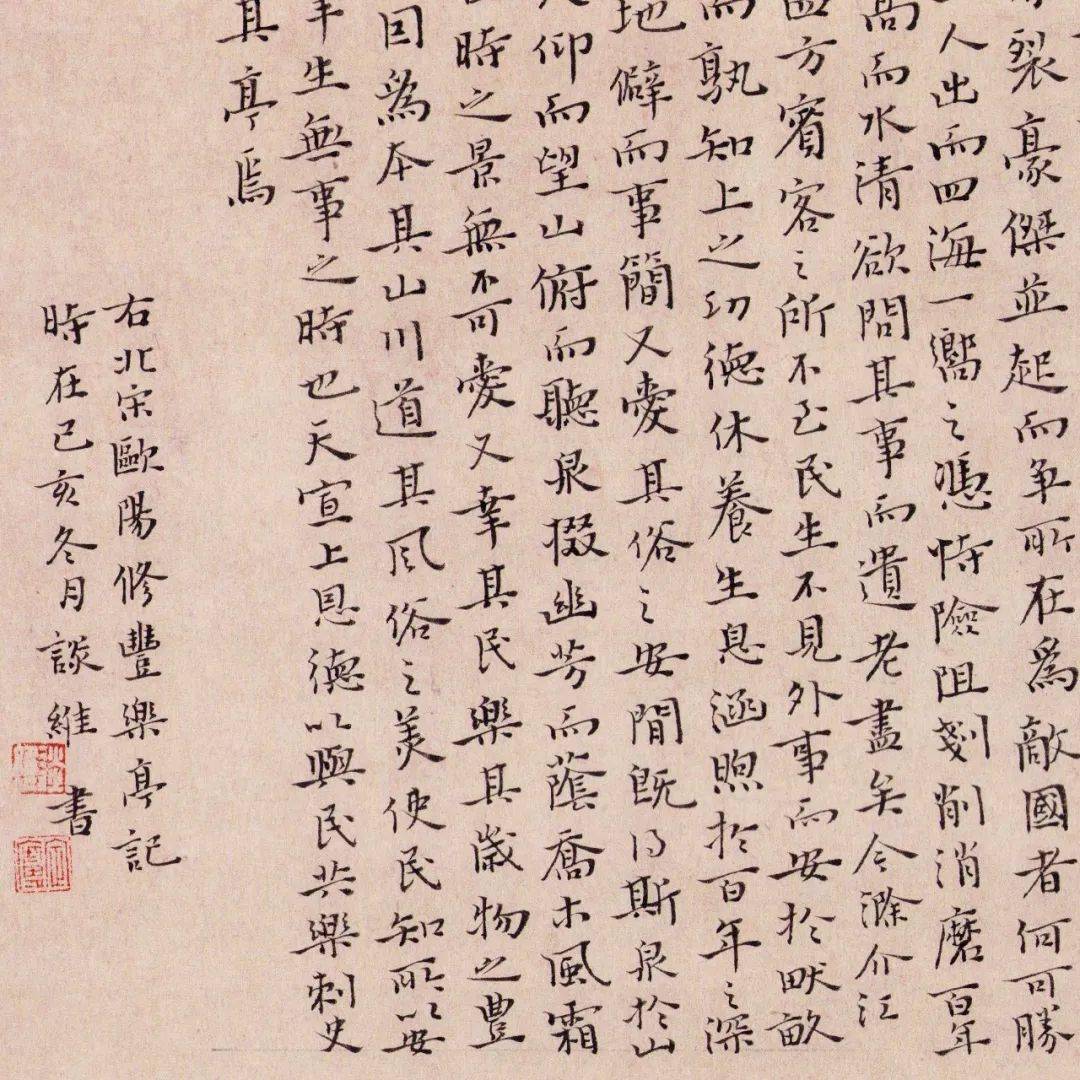 裂豪傑並起而争所在為敵國者何可勝
人出而四海一嚮之憑恃險阻剗削消磨百年
高而水清欲問其事而遺老盡矣今滁介江
四方賓客之所不至民生不見外事而安於畎畝
而孰知上之功德休養生息涵煦於百年之深
地僻而事簡又愛其俗之安閒既得斯泉於山
仰而望山俯而聽泉掇幽芳而蔭喬木風霜
時之景無不可愛又幸其民樂其歲物之豐
因為本其山川道其風俗之美使民知所以安
幸生無事之時也夫宣上恩德以與民共樂刺史
其亭焉
右北宋歐陽修豐樂亭記
時在己亥冬月談維書